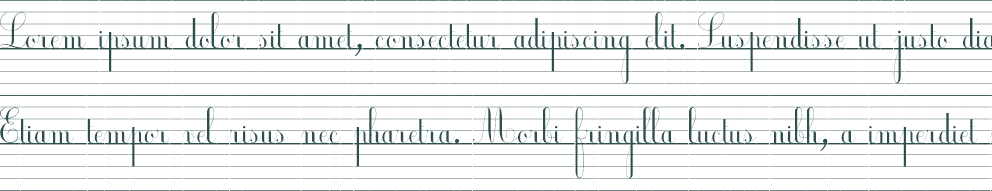 Lorem ipsum dolor sit amet, consectetur adipiscing elit. Suspendisse ut justo dia
Etiam tempor vel risus nec pharetra. Morbi fringilla luctus nibh, a imperdiet